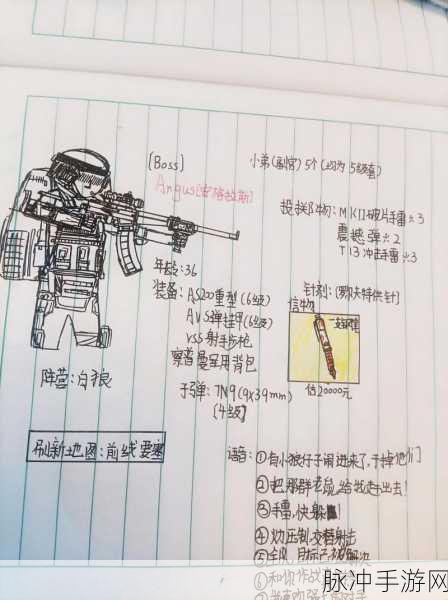 [Boss]
Angus[安格拉斯]
年龄:36
装备:AS200重型(6级)
AVS弹挂甲(6级)
VSS射手步枪
察普曼军用背包
子弹:7N9(9x39mm)
[4级]
阵营:白狼
刷新地图:前线要塞
小弟(副官)5个(均为5级套)
投掷物:MKII破片手雷×3
震撼弹×2
T13冲击手雷×3
针剂:[特供针]
信物
估20000元
语音:①有小狼仔子闹进来了,干掉他们
②把那群老鼠给我赶出去!
③手雷,快躲!
④火力压制,交替射击
⑤全队,目标已被解决
⑥和你作战
脉冲手游网